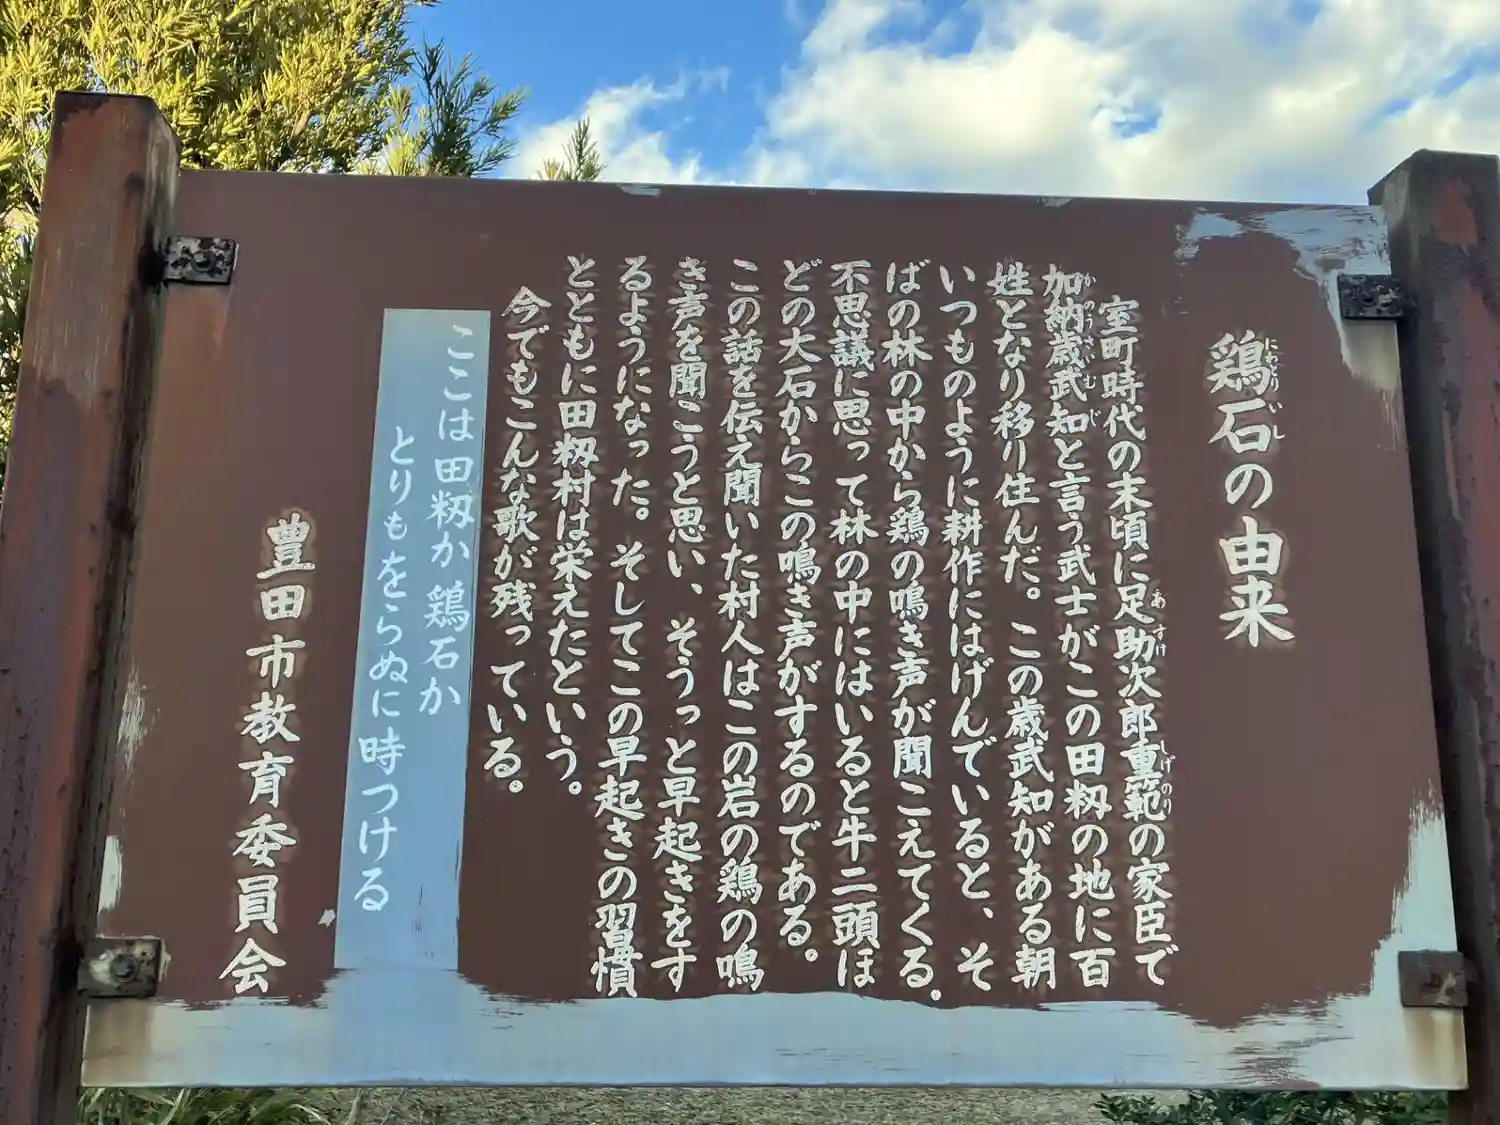 鶏石の由来
室町時代の末頃に足助次郎重範の家臣で
加納歳武知と言う武士がこの田籾の地に百
姓となり移り住んだ。この歳武知がある朝
いつものように耕作にはげんでいると、そ
ばの林の中から鶏の鳴き声が聞こえてくる。
不思議に思って林の中にはいると牛二頭ほ
どの大石からこの鳴き声がするのである。
この話を伝え聞いた村人はこの岩の鶏の鳴
き声を聞こうと思い、そうっと早起きをす
るようになった。そしてこの早起きの習慣
とともに田籾村は栄えたという。
今でもこんな歌が残っている。
ここは田籾か鶏石か
とりもをらぬに時つける
豊田市教育委員会